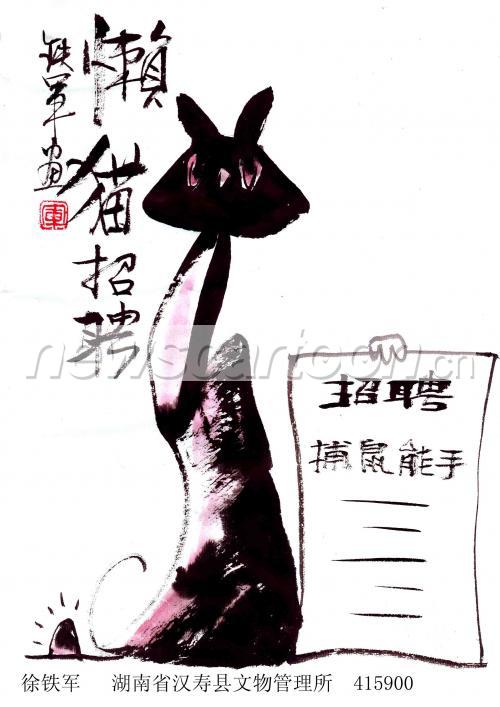 懒猫招聘
铁军画
軍
newscartoon.cn
招聘
捕鼠能手
徐铁军 湖南省汉寿县文物管理所 415900